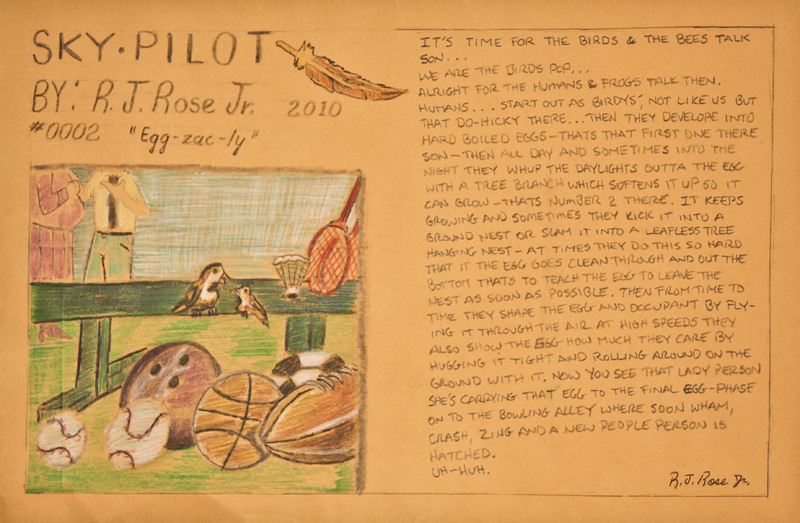 SKY·PILOT
BY: R.J. ROSE JR. 2010
#0002 "Egg-zac-ly"
IT'S TIME FOR THE BIRDS & THE BEES TALK
SON...
WE ARE THE BIRDS POP...
ALRIGHT FOR THE HUMANS & FROGS TALK THEN.
HUMANS... START OUT AS BIRDYS', NOT LIKE US BUT
THAT DO-HICKY THERE...THEN THEY DEVELOPE INTO
HARD BOILED EGGS-THATS THAT FIRST ONE THERE
SON-THEN ALL DAY AND SOMETIMES INTO THE
NIGHT THEY WHUP THE DAYLIGHTS OUTTA THE EGG
WITH A TREE BRANCH WHICH SOFTENS IT UP SO IT
CAN GROW-THATS NUMBER 2 THERE. IT KEEPS
GROWING AND SOMETIMES THEY KICK IT INTO A
GROUND NEST OR SLAM IT INTO A LEAFLESS TREE
HANGING NEST-AT TIMES THEY DO THIS SO HARD
THAT IT THE EGG GOES CLEAN THROUGH AND OUT THE
BOTTOM THATS TO TEACH THE EGG TO LEAVE THE
NEST AS SOON AS POSSIBLE. THEN FROM TIME TO
TIME THEY SHAPE THE EGG AND OCCUPANT BY FLY-
ING IT THROUGH THE AIR AT HIGH SPEEDS THEY
ALSO SHOW THE EGG HOW MUCH THEY CARE BY
HUGGING IT TIGHT AND ROLLING AROUND ON THE
GROUND WITH IT. NOW YOU SEE THAT LADY PERSON
SHE'S CARRYING THAT EGG TO THE FINAL EGG-PHASE
ON TO THE BOWLING ALLEY WHERE SOON WHAM,
CRASH, ZING AND A NEW PEOPLE PERSON IS
HATCHED.
UH-HUH.
R.J. Rose Jr.